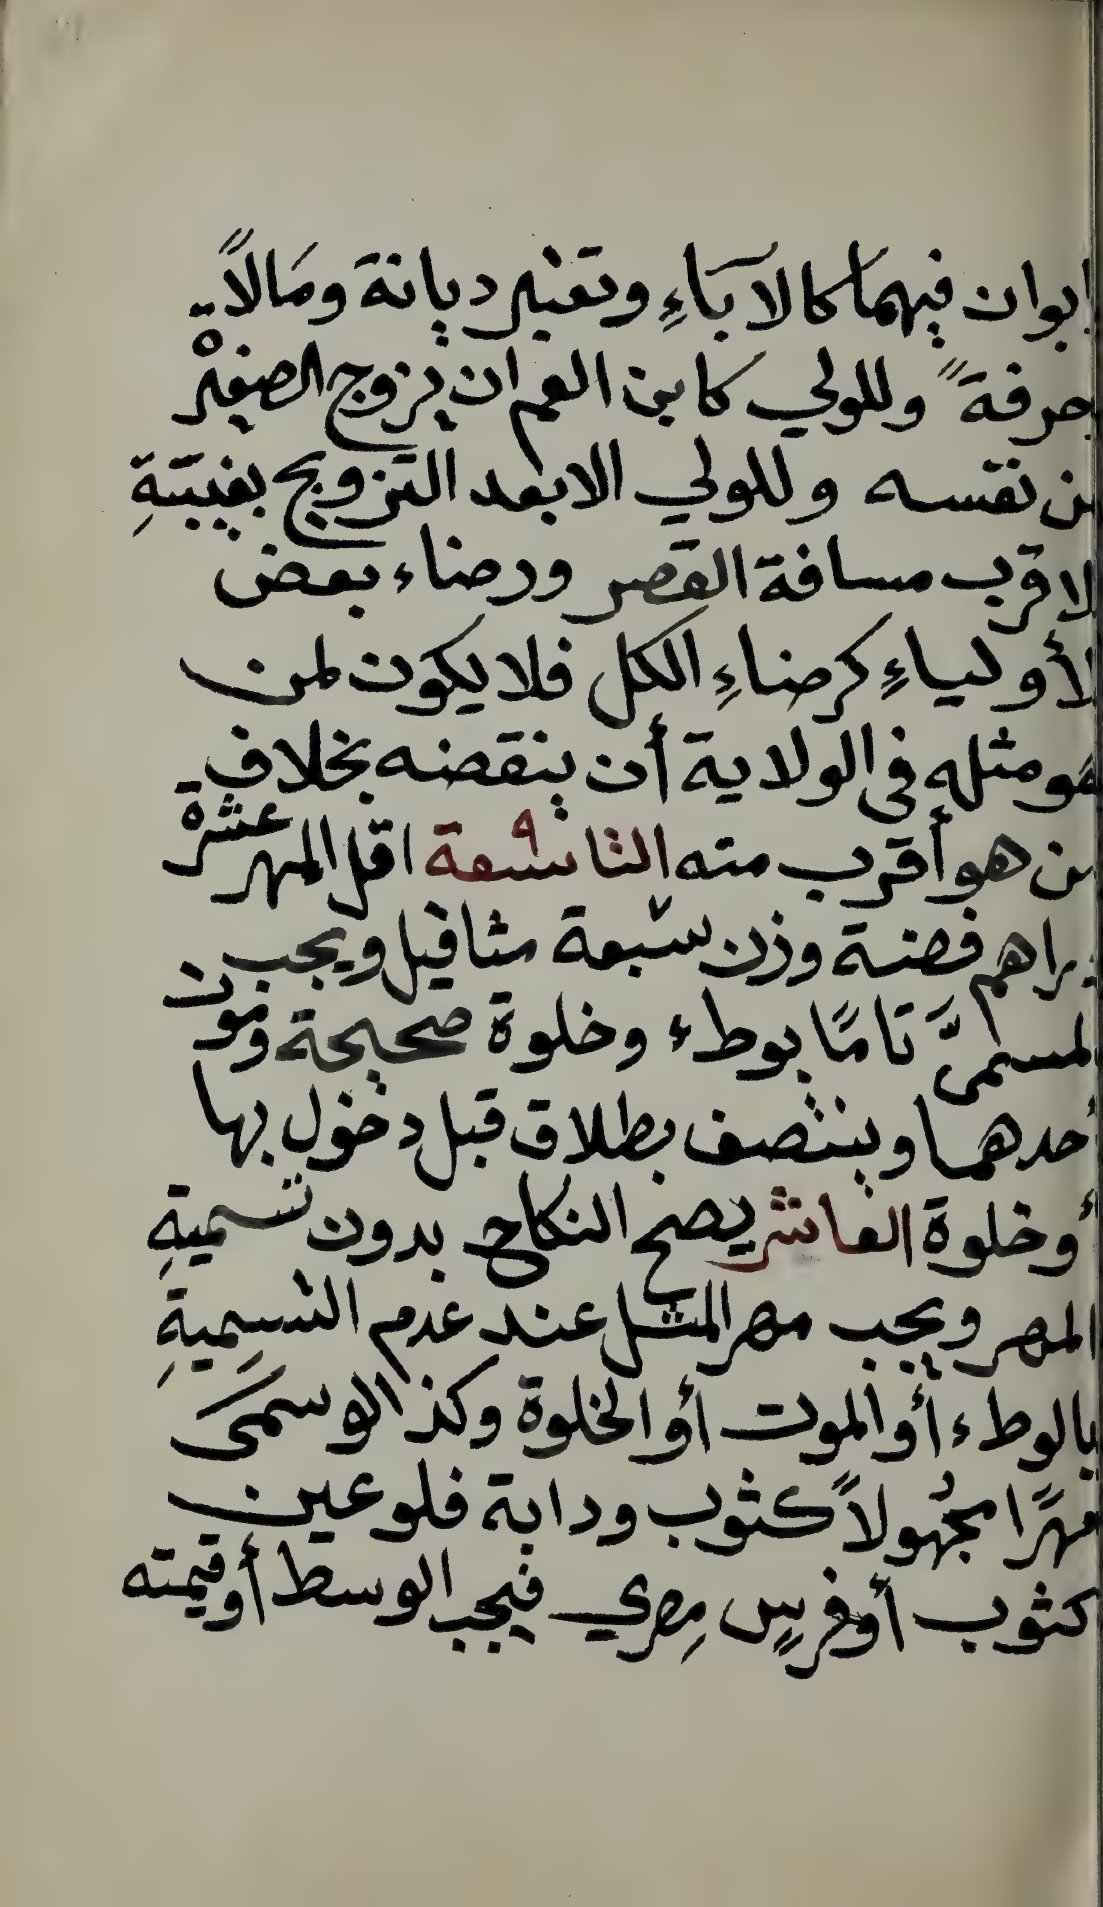 ابوان فيهما كالاَبَاءِ وتعتبر ديانة ومَالاً
حرفةً وللولي كابن العم ان يزوج الصغيرْ
من نفسه وللولي الابعد التزويج بغيبَتةِ
لاقرب مسافة القصر ورضاء بعض
لأولياءِ كرضاءِ الكل فلا يكون لمن
هَو مثله فى الولاية أن ينقضه بخلاف
من هو أقرب منه التاسعة ٩ اقل المهر عشرة
دراهم فضة وزن سبعة مثاقيل ويجب
لمسمىَّ تامًا بوطء وخلوة صحيحة وموت
أحدهما وينتصف بطلاق قبل دخول بها
أوخلوة العاشر يصح النكاح بدون تسميةِ
المهر ويجب مهر المثل عند عدم التسِميةِ
بالوطء أوالموت أوالخلوة وكذالوسمىَ
مهرًا مجُهولاً كثوب ودابة فلوعين
كثوب أوفرسٍ مِصري فيجب الوسط أوقيمته